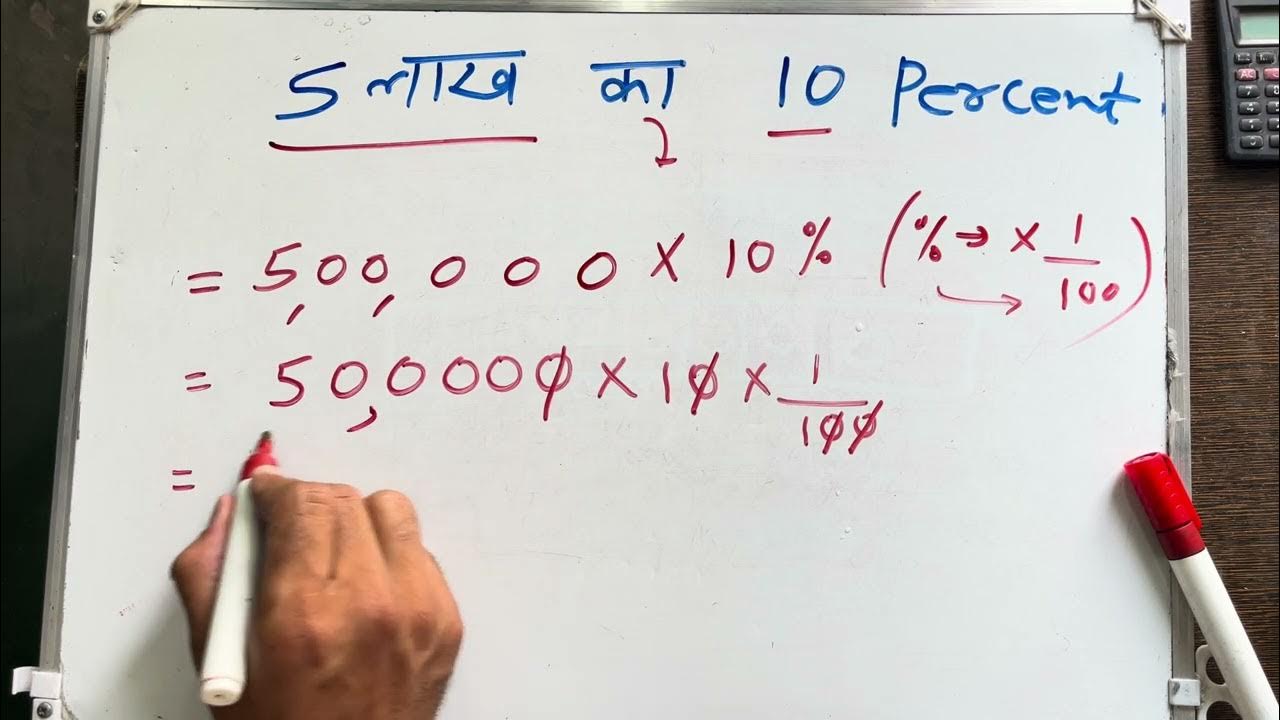 5 लाख का 10 Percent
= 5,00,000 × 10% (% → × 1/100)
= 50,0000 × 10 × 1/100
=